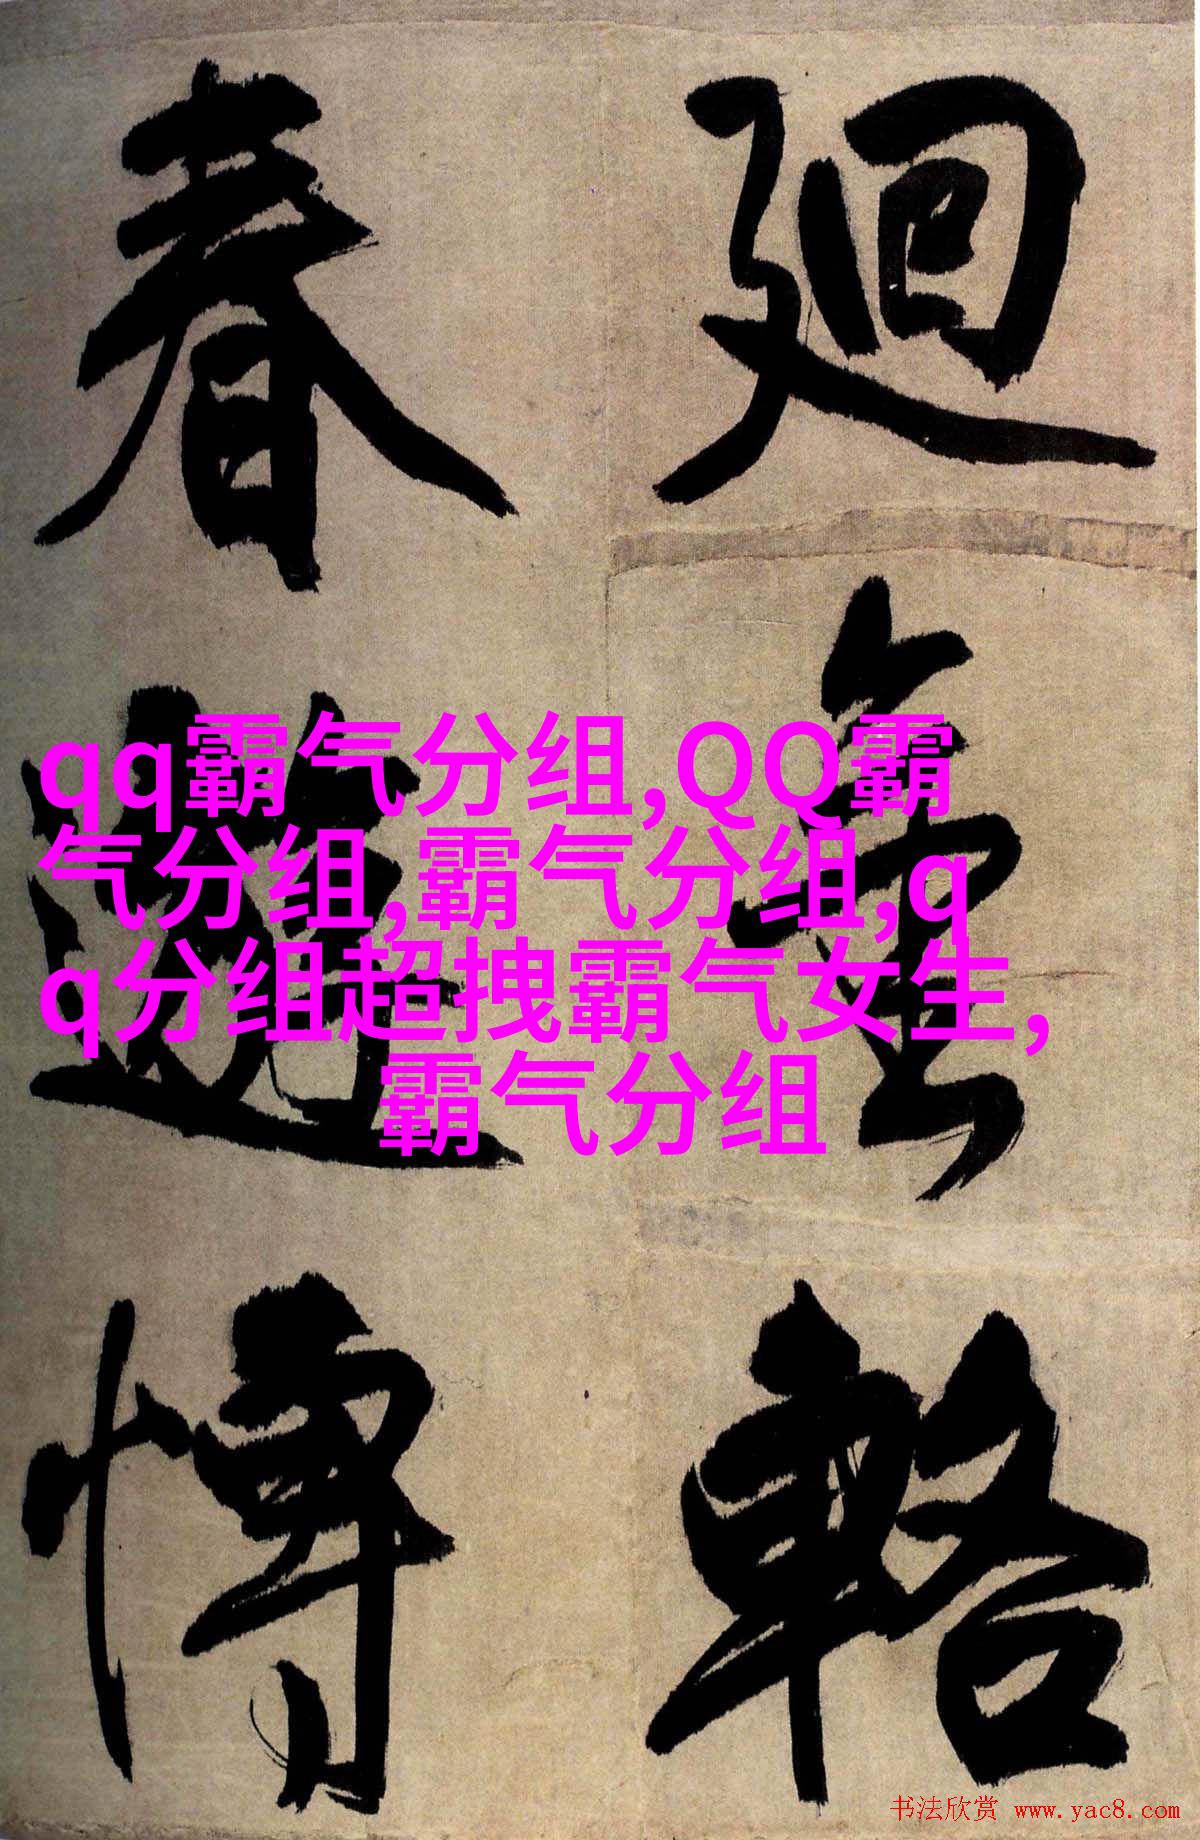 廻
輅
春
遊
愽
qq霸气分组,QQ霸
气分组,霸气分组,q
q分组超拽霸气女生,
霸气分组
书法欣赏 www.yac8.com